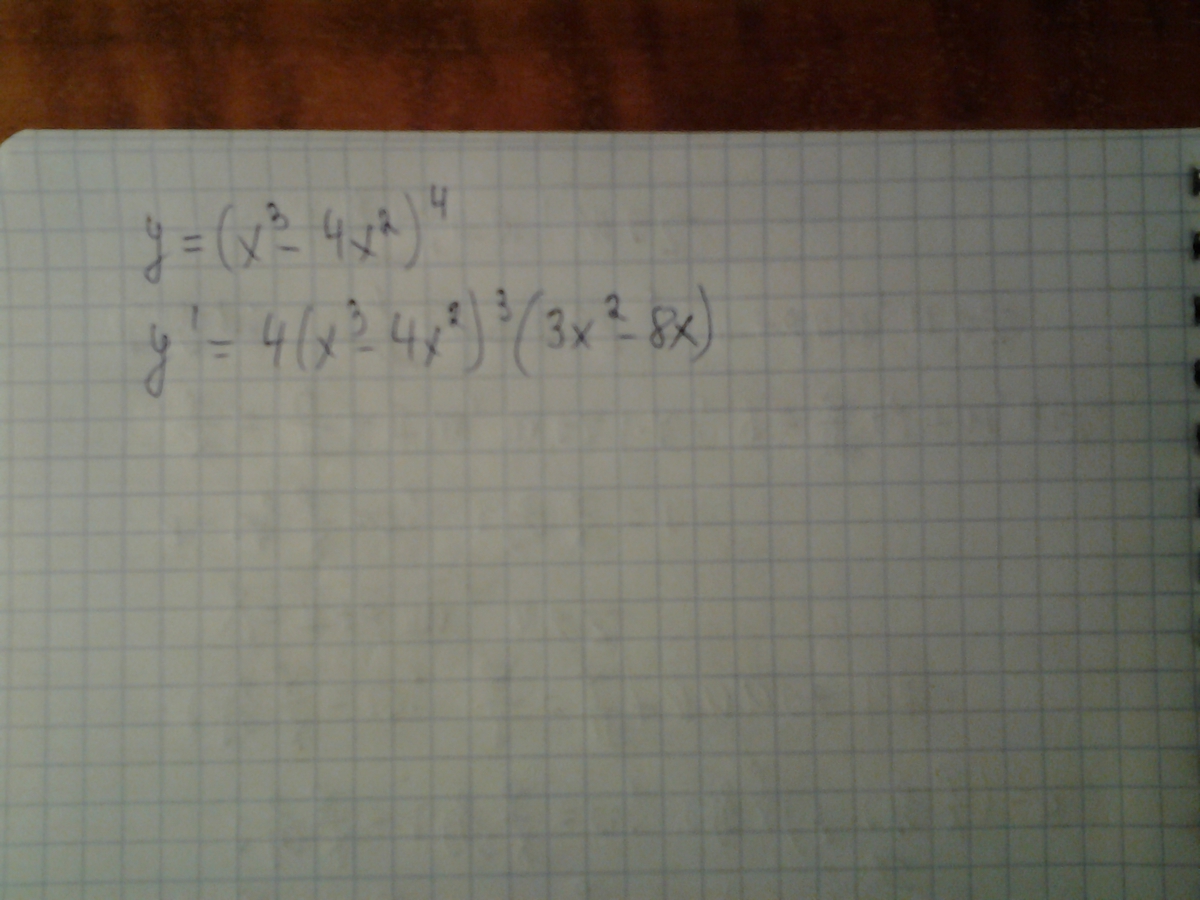 y = (x³ - 4x²)⁴
y' = 4(x³ - 4x²)³(3x² - 8x)